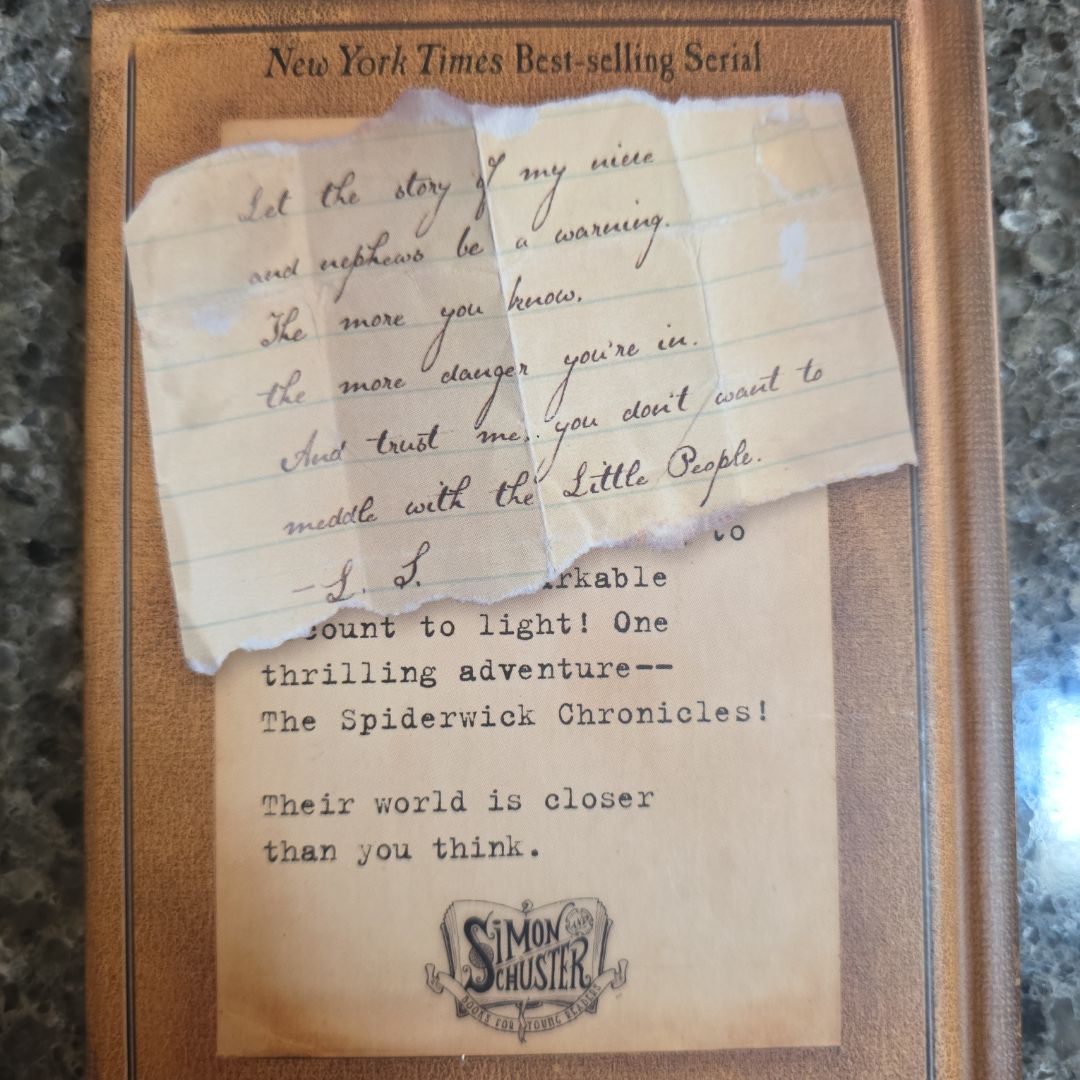 New York Times Best-selling Serial
Let the story of my niece
and nephews be a warning.
The more you know,
the more danger you're in.
And trust me, you don't want to
meddle with the Little People.
— L. S.
to
rkable
count to light! One
thrilling adventure--
The Spiderwick Chronicles!
Their world is closer
than you think.
SIMON AND
SCHUSTER
BOOKS FOR YOUNG READERS